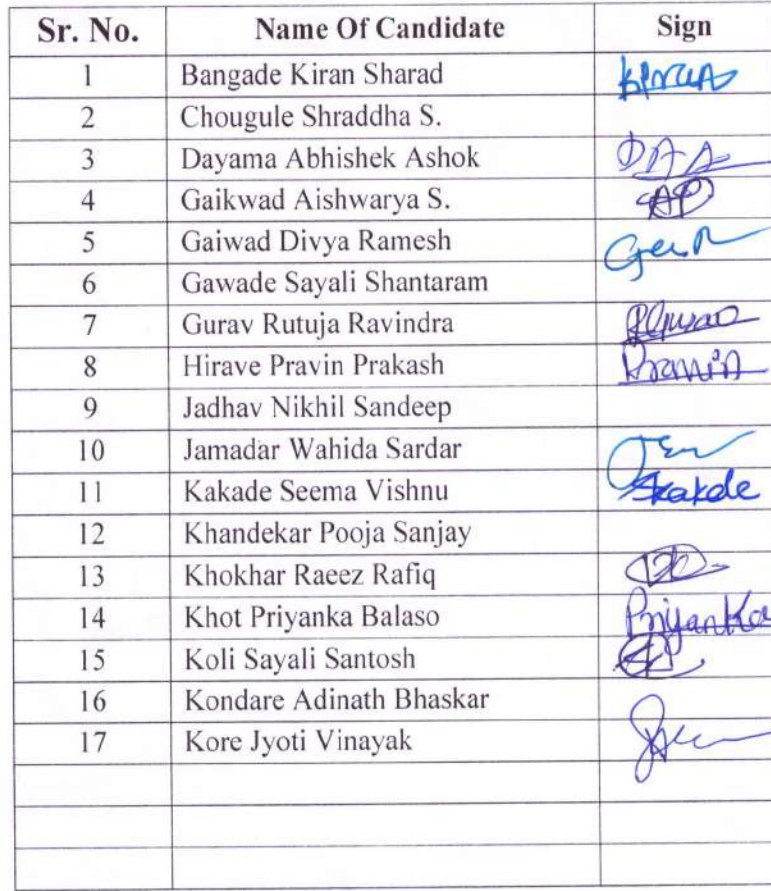 Sr. No. Name Of Candidate Sign
1 Bangade Kiran Sharad Kiran
2 Chougule Shraddha S.
3 Dayama Abhishek Ashok DAA
4 Gaikwad Aishwarya S.
5 Gaiwad Divya Ramesh
6 Gawade Sayali Shantaram
7 Gurav Rutuja Ravindra
8 Hirave Pravin Prakash Pravin
9 Jadhav Nikhil Sandeep
10 Jamadar Wahida Sardar
11 Kakade Seema Vishnu Skakde
12 Khandekar Pooja Sanjay
13 Khokhar Raeez Rafiq
14 Khot Priyanka Balaso Priyanka
15 Koli Sayali Santosh
16 Kondare Adinath Bhaskar
17 Kore Jyoti Vinayak